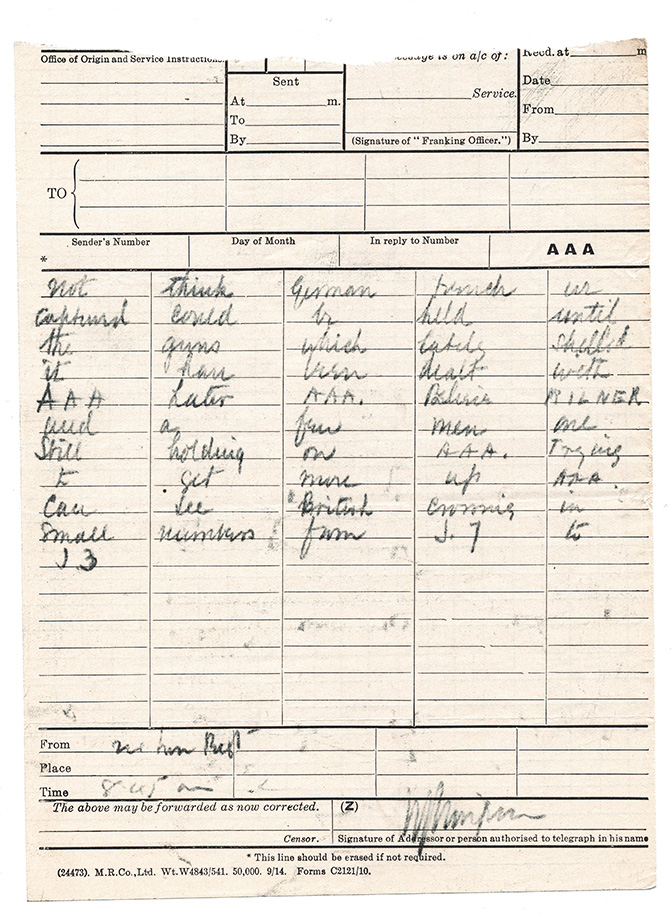 Office of Origin and Service Instructions.
Sent
At m.
To
By
message is on a/c of:
Service.
(Signature of "Franking Officer.")
Recd. at m
Date
From
By
TO
Sender's Number Day of Month In reply to Number AAA
*
Not think German trench we
captured could be held until
the guns which lately shelled
it have been dealt with
AAA Later AAA. Believe MILNER
and a few men are
Still holding on AAA. Trying
to get more up AAA.
Can see British crossing in
small numbers from J.7 to
J.3
From
Place
Time 8.45 am
The above may be forwarded as now corrected. (Z)
Censor. Signature of Addressor or person authorised to telegraph in his name
* This line should be erased if not required.
(24473). M.R.Co.,Ltd. Wt.W4843/541. 50,000. 9/14. Forms C2121/10.